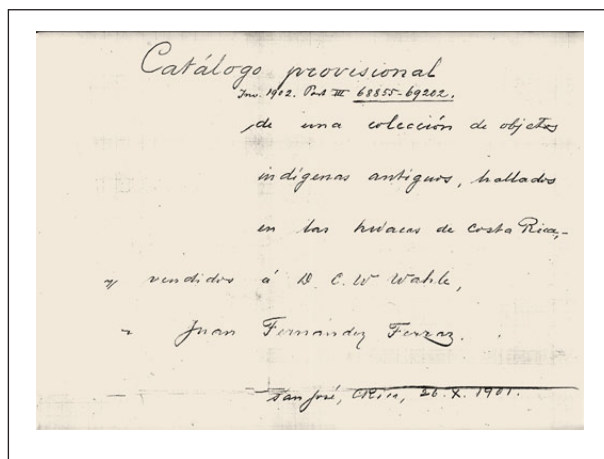 Catálogo provisional
Inv. 1902. Part III 68855-69202.
de una colección de objetos
indígenas antiguos, hallados
en las huacas de Costa Rica,-
y vendidos á D. C. W Wahle,
Juan Fernández Ferraz.
San José, CRica, 26. X. 1901.